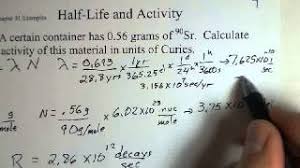 Half-Life and Activity
A certain container has 0.56 grams of 90Sr. Calculate
activity of this material in units of Curies.
λ N λ = 0.693 / 28.8 yrs × 1yr / 365.25d × 1d / 24h × 1h / 3600s → 7.625×10
sec
3.156 × 10^7 sec/yr
N = .56g × 6.02×10^23 nuc → 3.75 × 10
g/mole mole
R = 2.86 × 10^12 decays
sec